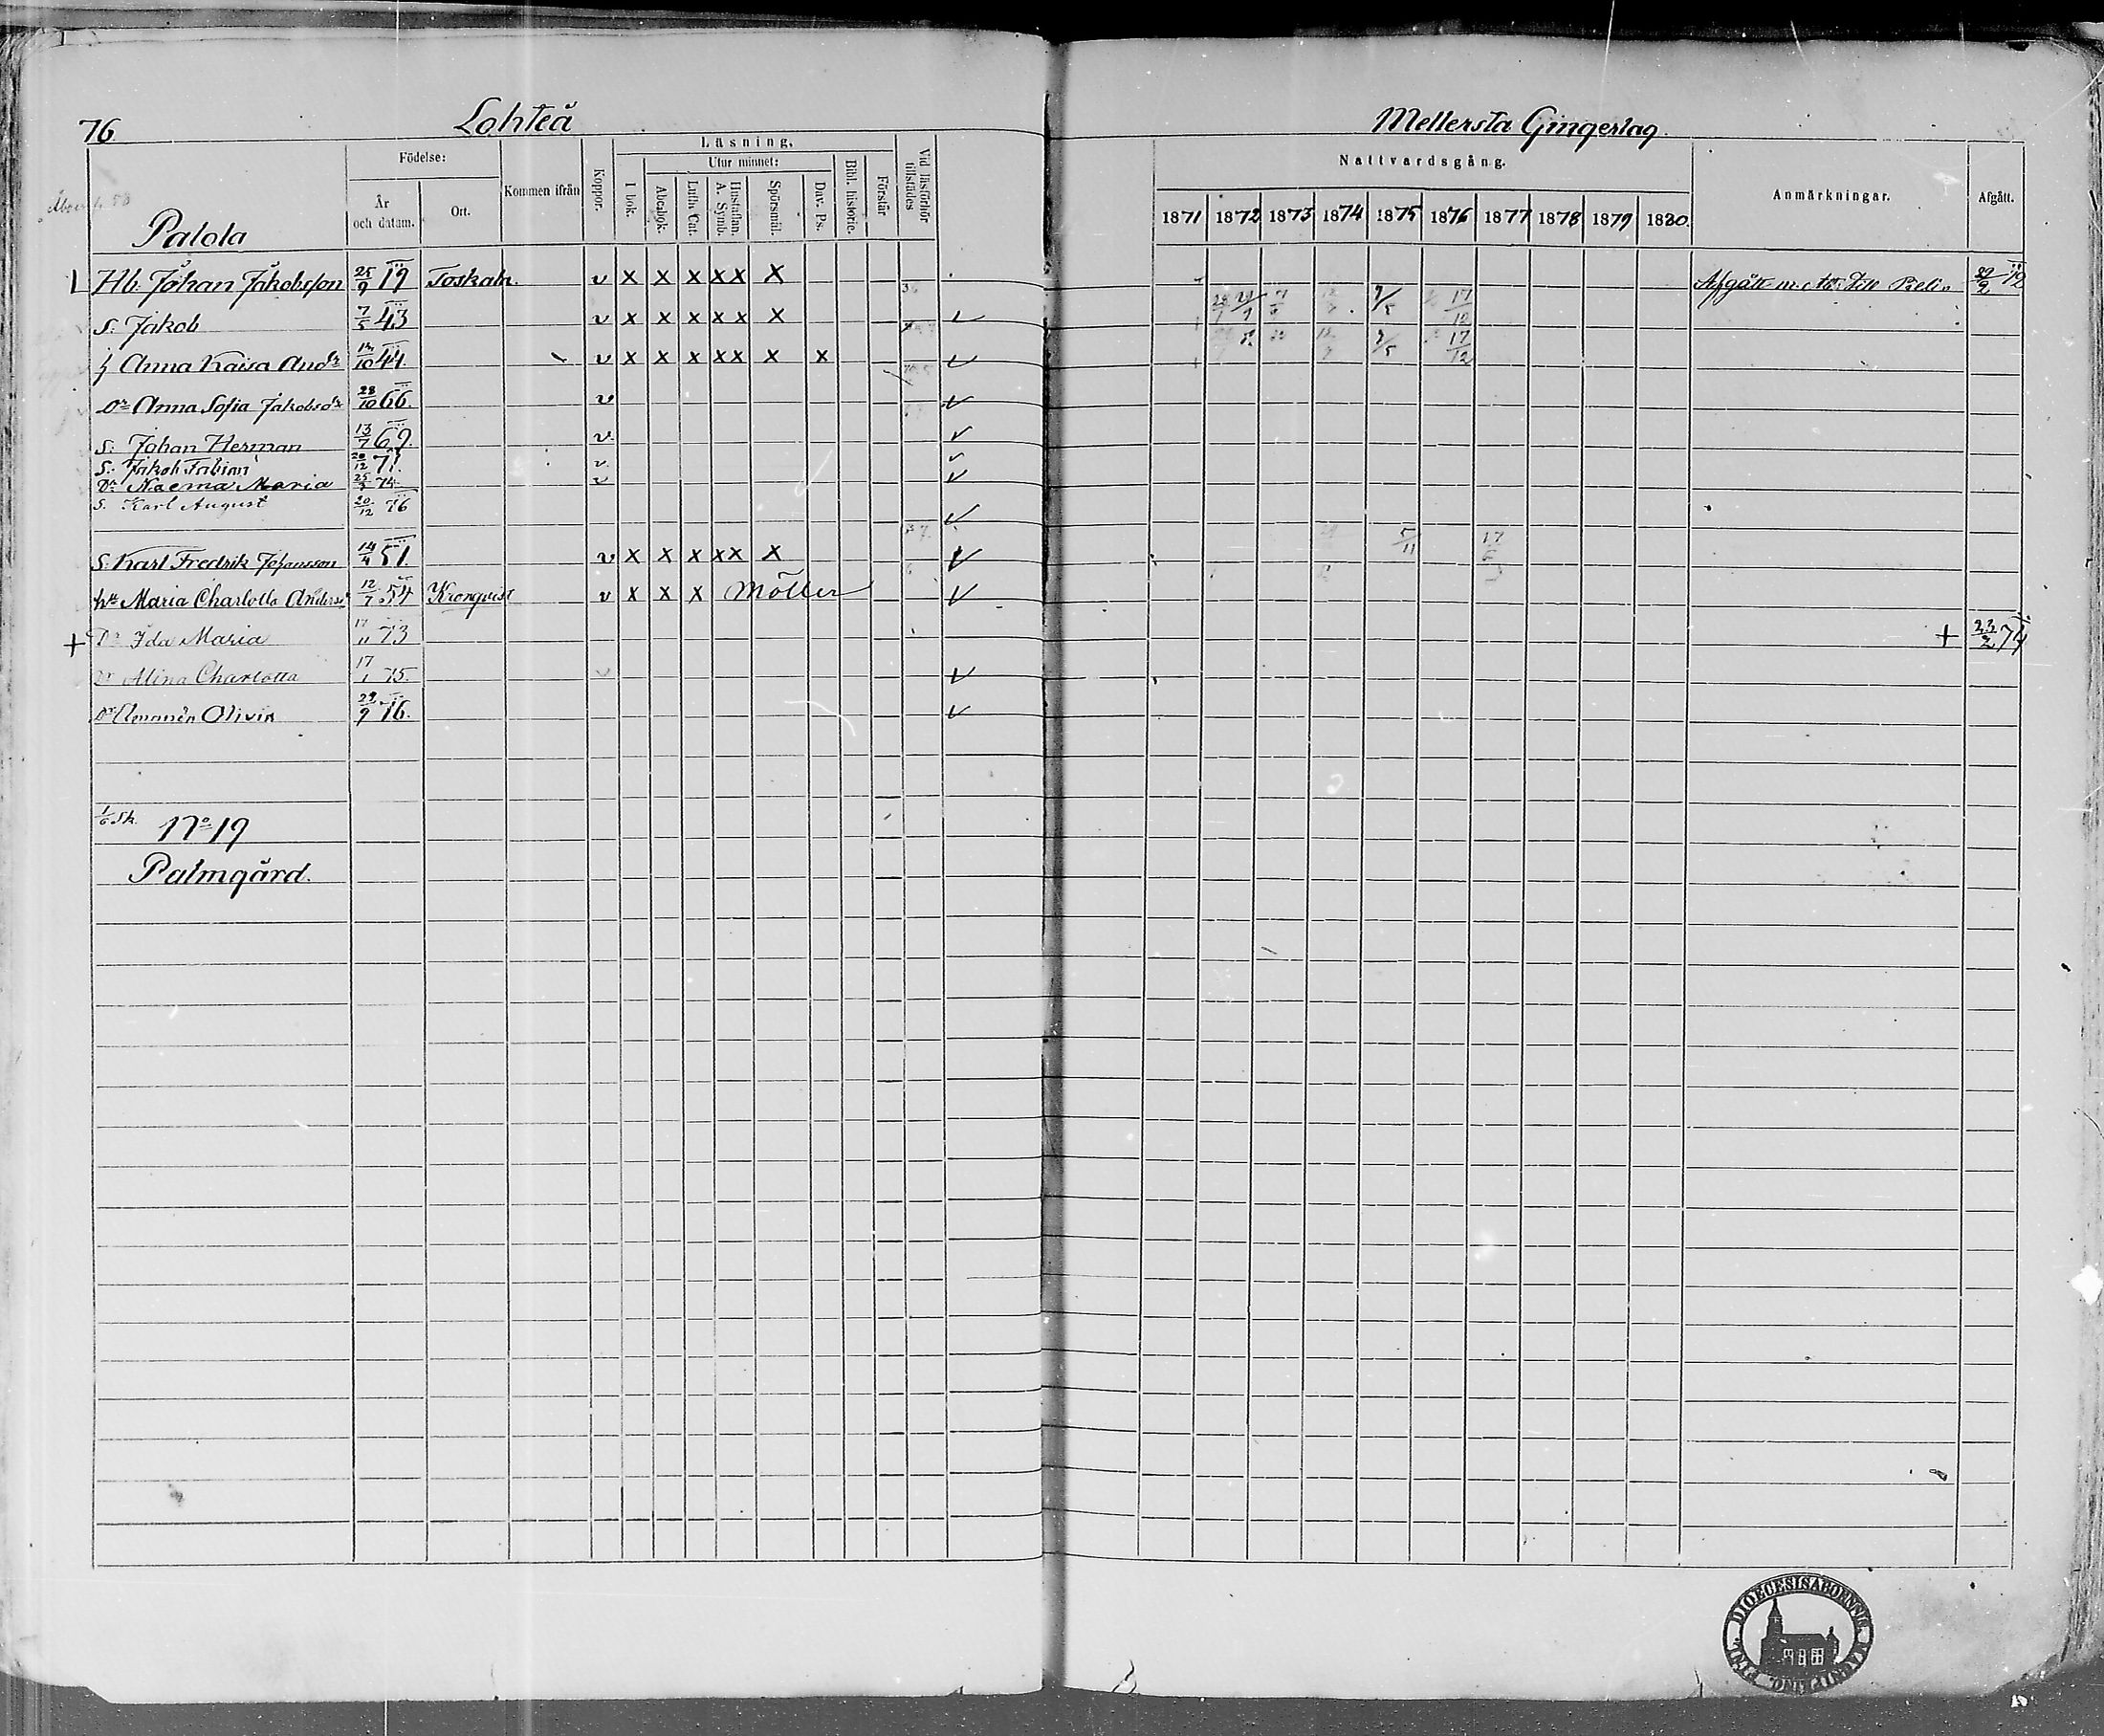 76.
Lohteå
Mellersta Gingerlag.
Födelse:
År och datum.
Ort.
Kommen ifrån
Koppor.
Läsning,
I bok.
Utur minnet:
Abcbok.
Luth. Cat.
Hustaflan. A. Symb.
Spörsmål.
Dav. Ps.
Bibl. historie.
Förstår
Vid läsförhör tillstädes
Nattvardsgång.
1871 1872 1873 1874 1875 1876 1877 1878 1879 1880.
Anmärkningar.
Afgått.
Palola
Hb. Johan Jakobsson 25/9 19 Toskala. v x x x x x x Afgått m. att. till 29/2 72
S. Jakob 7/5 43 v x x x x x x 9/5 17/12
h Anna Kaisa Andr 44 v x x x x x x x 9/5 17/12
Dr Anna Sofia Jakobsdr 28/10 66. v
S. Johan Herman 13/7 69. v.
S. Jakob Fabian 20/12 71. v.
Dr Naema Maria 25/3 74 v
S. Karl August 20/12 76
S. Karl Fredrik Johansson 14/4 51. v x x x x x x 5/11 17
h. Maria Charlotta Anders 12/7 54 Kronqvist v x x x Möller
+ Dr Ida Maria 17/11 73 + 23/2 74
Dr Alina Charlotta 17/1 75.
Dr Amanda Olivia 29/9 76.
1/6 Sk. No 19
Palmgård.
DIOECESIS ABOENSIS